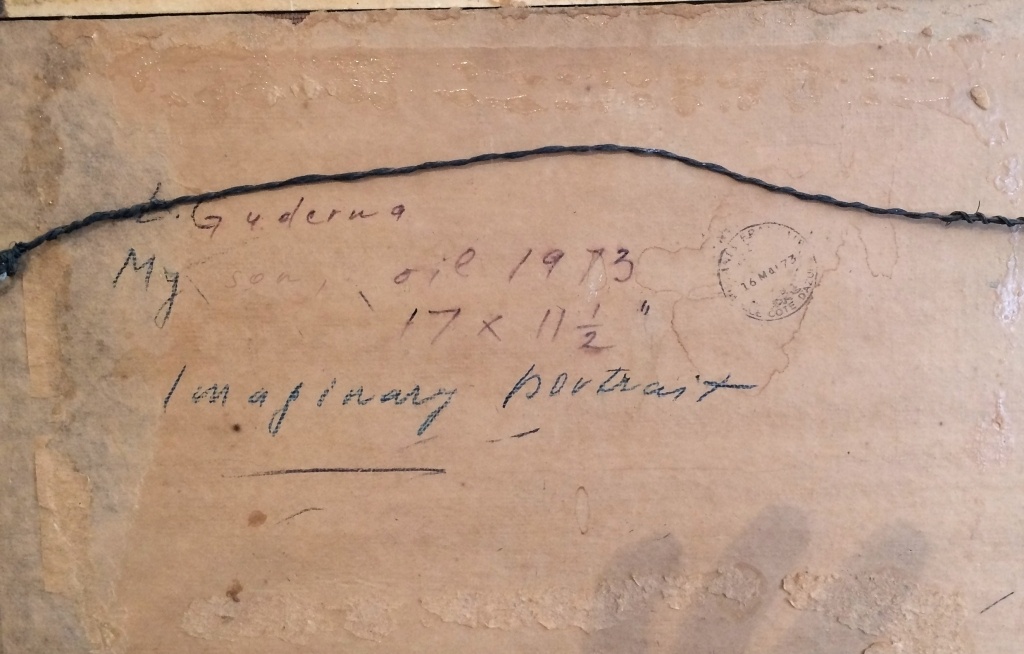 L. Guderna
My son, oil 1973
17 x 11 1/2 "
Imaginary portrait
16 Mar 73
COTE